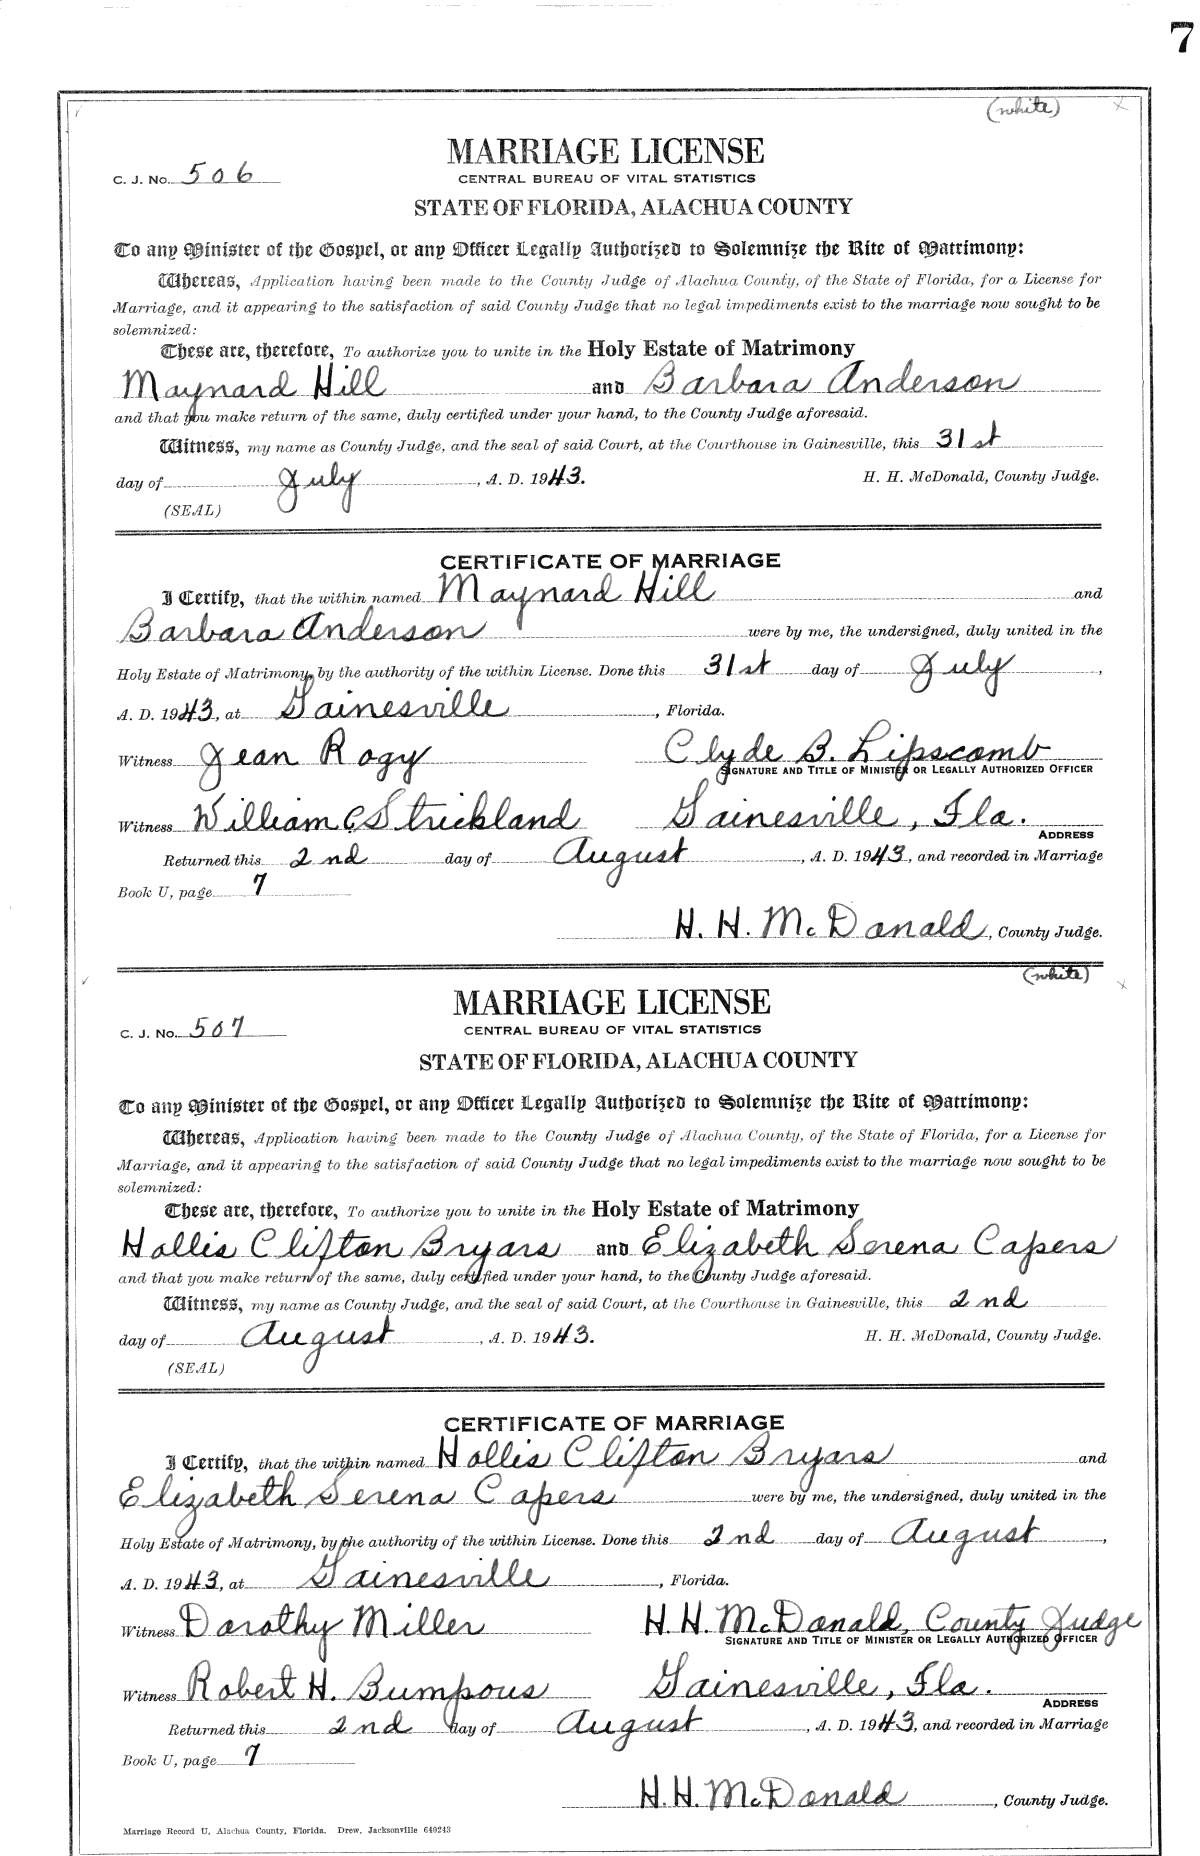 7
(white)
MARRIAGE LICENSE
C. J. No. 506
CENTRAL BUREAU OF VITAL STATISTICS
STATE OF FLORIDA, ALACHUA COUNTY
To any Minister of the Gospel, or any Officer Legally Authorized to Solemnize the Rite of Matrimony:
Whereas, Application having been made to the County Judge of Alachua County, of the State of Florida, for a License for
Marriage, and it appearing to the satisfaction of said County Judge that no legal impediments exist to the marriage now sought to be
solemnized:
These are, therefore, To authorize you to unite in the Holy Estate of Matrimony
Maynard Hill and Barbara Anderson
and that you make return of the same, duly certified under your hand, to the County Judge aforesaid.
Witness, my name as County Judge, and the seal of said Court, at the Courthouse in Gainesville, this 31st
day of July, A. D. 1943. H. H. McDonald, County Judge.
(SEAL)
CERTIFICATE OF MARRIAGE
I Certify, that the within named Maynard Hill and
Barbara Anderson were by me, the undersigned, duly united in the
Holy Estate of Matrimony, by the authority of the within License. Done this 31st day of July,
A. D. 1943, at Gainesville, Florida.
Witness Jean Rogy Clyde B. Lipscomb
SIGNATURE AND TITLE OF MINISTER OR LEGALLY AUTHORIZED OFFICER
Witness William C Strickland Gainesville, Fla.
ADDRESS
Returned this 2nd day of August, A. D. 1943, and recorded in Marriage
Book U, page 7
H. H. McDonald, County Judge.
(white)
MARRIAGE LICENSE
C. J. No. 507
CENTRAL BUREAU OF VITAL STATISTICS
STATE OF FLORIDA, ALACHUA COUNTY
To any Minister of the Gospel, or any Officer Legally Authorized to Solemnize the Rite of Matrimony:
Whereas, Application having been made to the County Judge of Alachua County, of the State of Florida, for a License for
Marriage, and it appearing to the satisfaction of said County Judge that no legal impediments exist to the marriage now sought to be
solemnized:
These are, therefore, To authorize you to unite in the Holy Estate of Matrimony
Hollis Clifton Bryars and Elizabeth Serena Capers
and that you make return of the same, duly certified under your hand, to the County Judge aforesaid.
Witness, my name as County Judge, and the seal of said Court, at the Courthouse in Gainesville, this 2nd
day of August, A. D. 1943. H. H. McDonald, County Judge.
(SEAL)
CERTIFICATE OF MARRIAGE
I Certify, that the within named Hollis Clifton Bryars and
Elizabeth Serena Capers were by me, the undersigned, duly united in the
Holy Estate of Matrimony, by the authority of the within License. Done this 2nd day of August,
A. D. 1943, at Gainesville, Florida.
Witness Dorothy Miller H. H. McDonald, County Judge
SIGNATURE AND TITLE OF MINISTER OR LEGALLY AUTHORIZED OFFICER
Witness Robert H. Bumpous Gainesville, Fla.
ADDRESS
Returned this 2nd day of August, A. D. 1943, and recorded in Marriage
Book U, page 7
H. H. McDonald, County Judge.
Marriage Record U, Alachua County, Florida. Drew, Jacksonville 640243